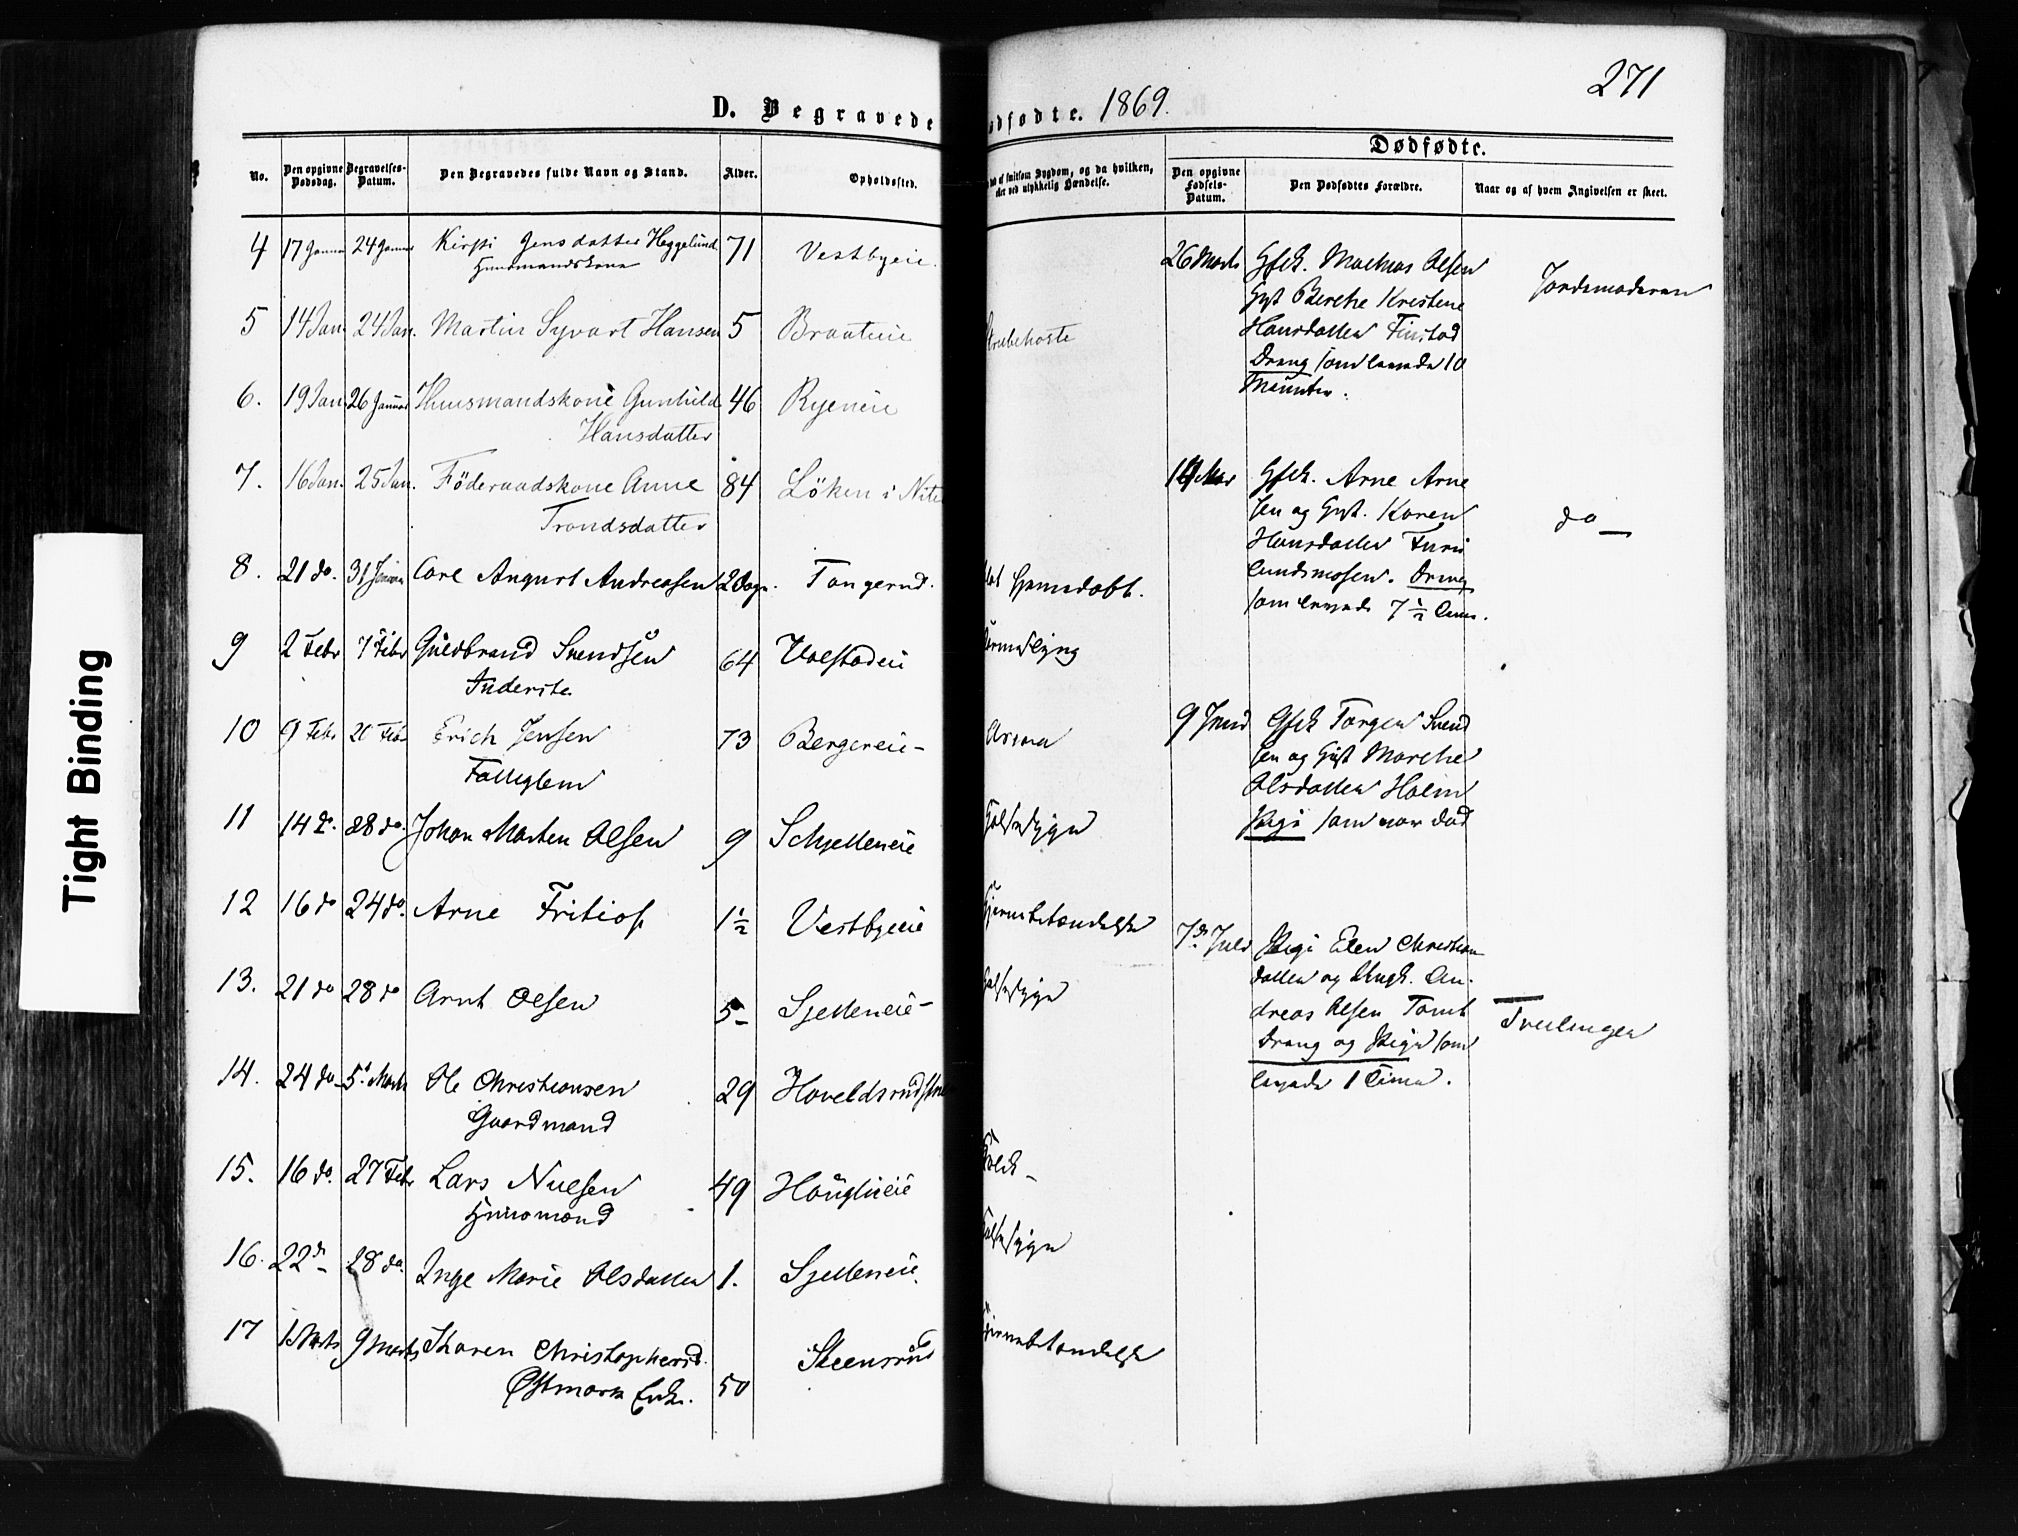 271
D. Begravede
ødfødte. 1869.
Dødfødte.
No.
Den opgivne Dødsdag.
Begravelses-Datum.
Den Begravedes fulde Navn og Stand.
Alder.
Opholdssted.
af smitsom Sygdom, og da hvilken,
eller ved ulykkelig Hændelse.
Den opgivne Fødsels-Datum.
Den Dødfødtes Forældre.
Naar og af hvem Angivelsen er skeet.
4 17 Januar 24 Januar Kirsti Jensdatter Heggelund 71 Vestbyeie.
Huusmandskone
5 14 Jan. 24 Jan. Martin Syvart Hansen 5 Braateie
Strubehoste
6. 19 Jan 26 Januar Huusmandskone Gunhild 46 Ryeneie
Hansdatter
7. 16 Jan. 25 Jan. Föderaadskone Anne 84 Löken i Nite
Trondsdatter
8. 21 do. 31 Januar Carl August Andreasen 2 Dage. Tangerud.
Hjemedøbt.
9 2 Febr 7 Febr Guldbrand Svendsen 64 Ualstadeie
Inderste
10 9 Febr 20 Febr Erich Jensen 73 Bergereie-
Fattiglem
11 14 do. 28 do. Johan Marten Olsen 9 Schjetteneie
12 16 do 24 do. Arne Fritiof 1½ Vestbyeie
Hjernebetændelse
13. 21 do 28 do Arnt Olsen 5- Sjetteneie-
14. 24 do 5 Marts Ole Christiansen 29
Gaardmand
15. 16 do. 27 Febr Lars Nielsen 49 Hauglieie
Huusmand
16. 22 d 28 do. Inge Marie Olsdatter 1. Sjetteneie.
17 1 Marts 9 Marts Karen Christophersd. Steensrud
Østmark Enke. 50
Hjernebetændelse
26 Marts Gfck. Mathias Olsen
Gyst Berthe Kristine
Hansdatter Finstad
Dreng som levede 10
Minuter.
Jordemoderen
Gfck. Arne Arne
sen og Gyst. Karen
Hansdatter Furu
lundmosen. Dreng
som levede 7½ Time.
do —
9 Juni Gfck Torger Svend
sen og Gyst Marthe
Olsdatter Holm
Pige som var død
7d Juli Pige Elen Christian
datter og Ungk. An-
dreas Olsen Tomt
Dreng og Pige som
levede 1 Time.
Tvillinger
Tight Binding